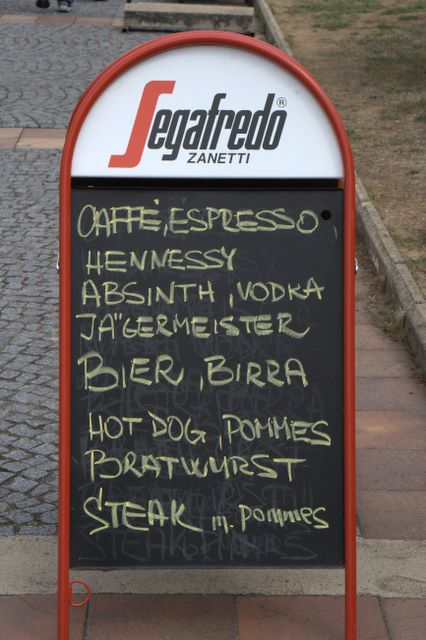 Segafredo®
ZANETTI
CAFFÈ, ESPRESSO
HENNESSY
ABSINTH, VODKA
JÄGERMEISTER
BIER, BIRRA
HOT DOG, POMMES
BRATWURST
STEAK m. pommes